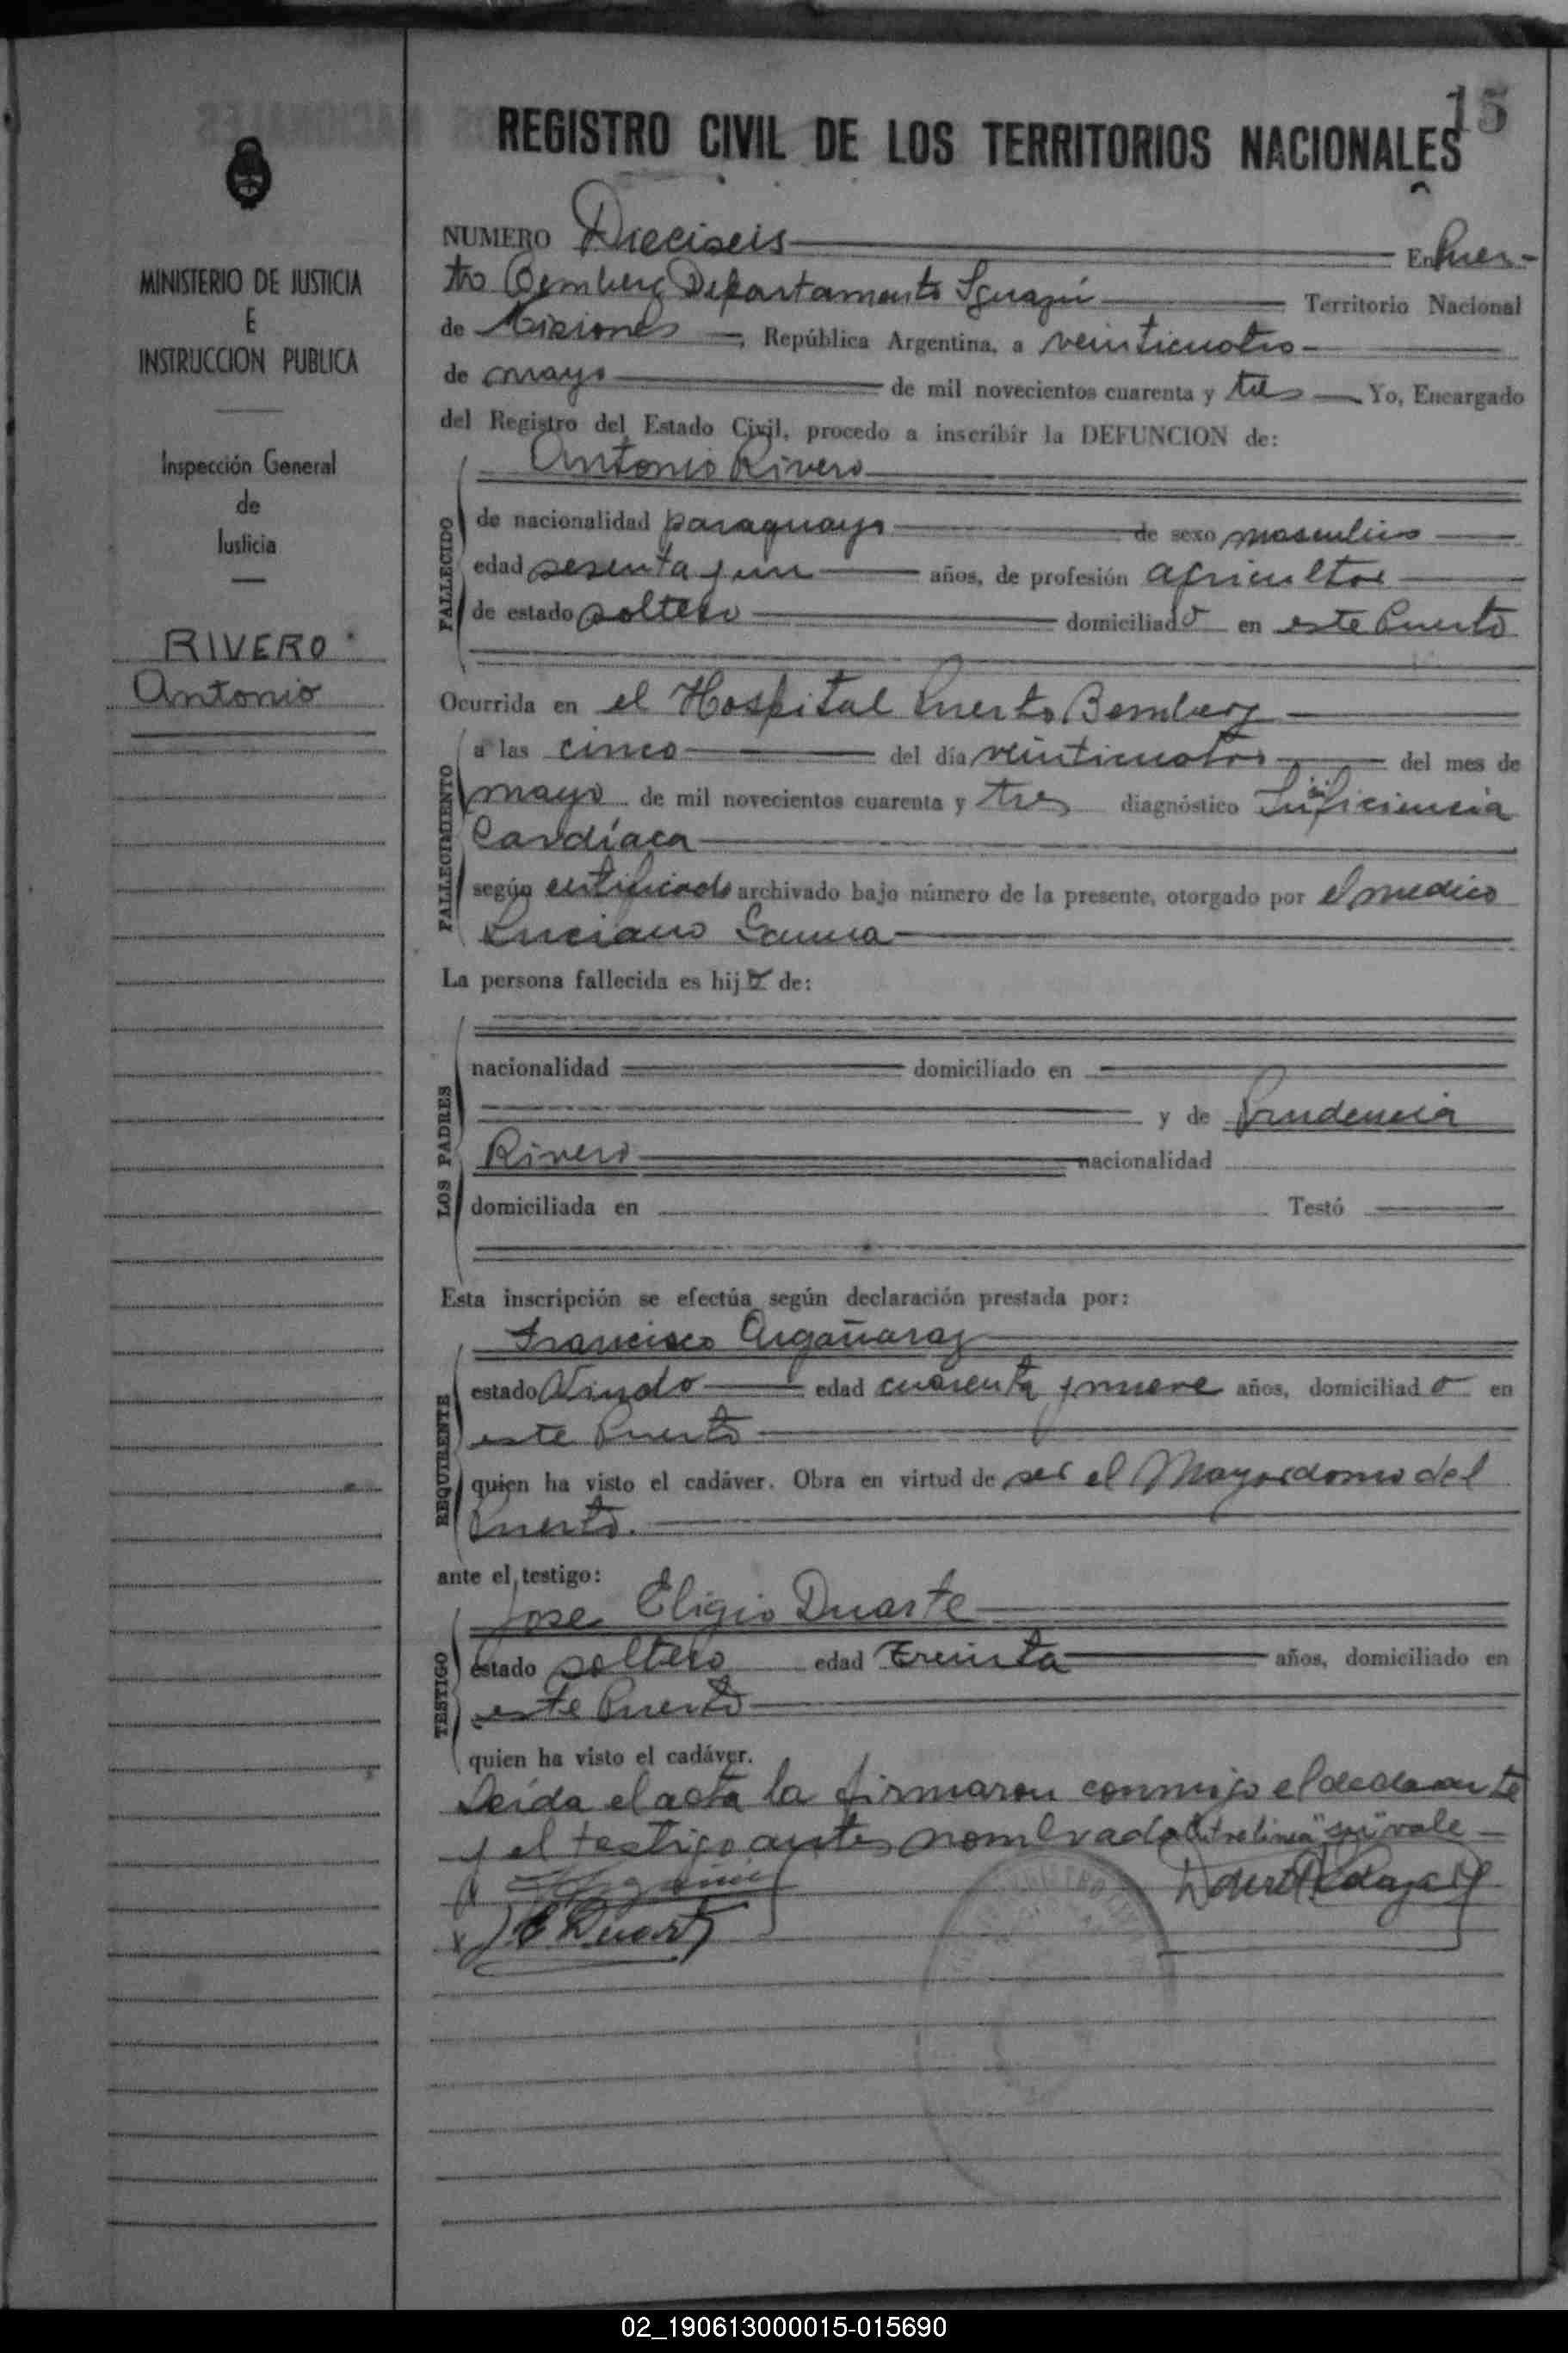 15
REGISTRO CIVIL DE LOS TERRITORIOS NACIONALES
MINISTERIO DE JUSTICIA
E
INSTRUCCION PUBLICA
Inspección General
de
Justicia
RIVERO
Antonio
NUMERO Dieciseis En Puer-
to Bemberg Departamento Iguazú Territorio Nacional
de Misiones, República Argentina, a veinticuatro
de mayo de mil novecientos cuarenta y tres Yo, Encargado
del Registro del Estado Civil, procedo a inscribir la DEFUNCION de:
Antonio Rivero
FALLECIDO
de nacionalidad paraguayo de sexo masculino
edad sesenta y un años, de profesión agricultor
de estado soltero domiciliado en este Puerto
Ocurrida en el Hospital Puerto Bemberg
FALLECIMIENTO
a las cinco del día veinticuatro del mes de
mayo de mil novecientos cuarenta y tres diagnóstico Insuficiencia
Cardíaca
según certificado archivado bajo número de la presente, otorgado por el medico
Luciano
La persona fallecida es hijo de:
LOS PADRES
nacionalidad domiciliado en
y de Prudencia
Rivero nacionalidad
domiciliada en Testó
Esta inscripción se efectúa según declaración prestada por:
Francisco Argañaraz
REQUIRENTE
estado Viudo edad cuarenta y nueve años, domiciliado en
este Puerto
quien ha visto el cadáver. Obra en virtud de ser el Mayordomo del
Puerto.
ante el testigo:
Jose Eligio Duarte
TESTIGO
estado soltero edad treinta años, domiciliado en
este Puerto
quien ha visto el cadáver.
Leída el acta la firmaron conmigo el declarante
y el testigo antes nombrado Entrelinea "su" vale
J E Duarte
02_190613000015-015690